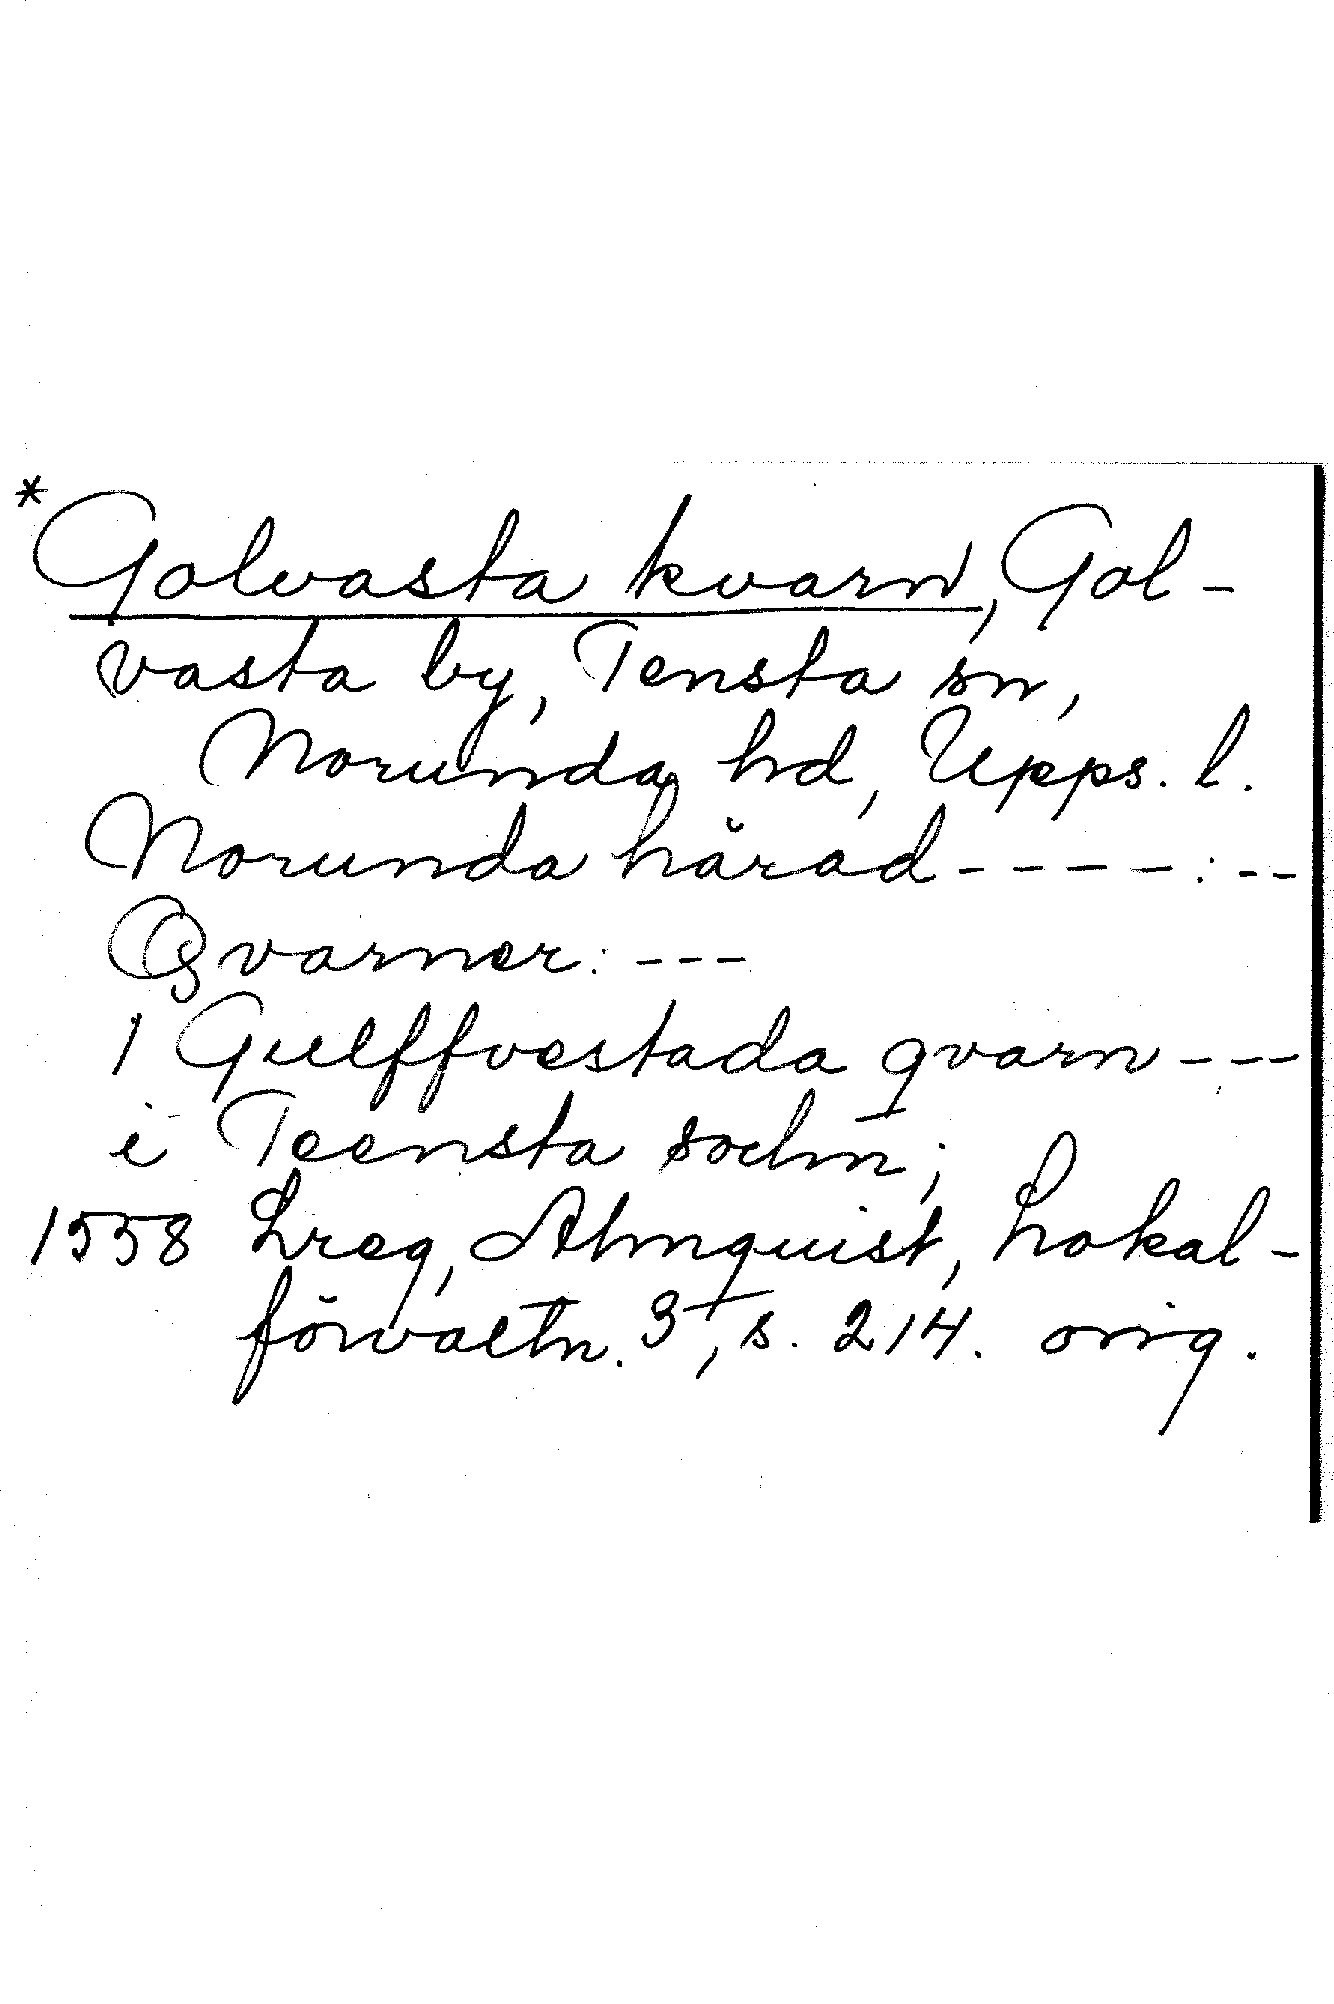 *Golvasta kvarn, Gol-
vasta by, Tensta sn,
Norunda hd, Upps. l.
Norunda härad ----:--
Qvarner: ---
1 Gulffvestada qvarn ---
i Teensta sochn;
1558 Lreg, Almquist, Lokal-
förvaltn. 3, s. 214. orig.